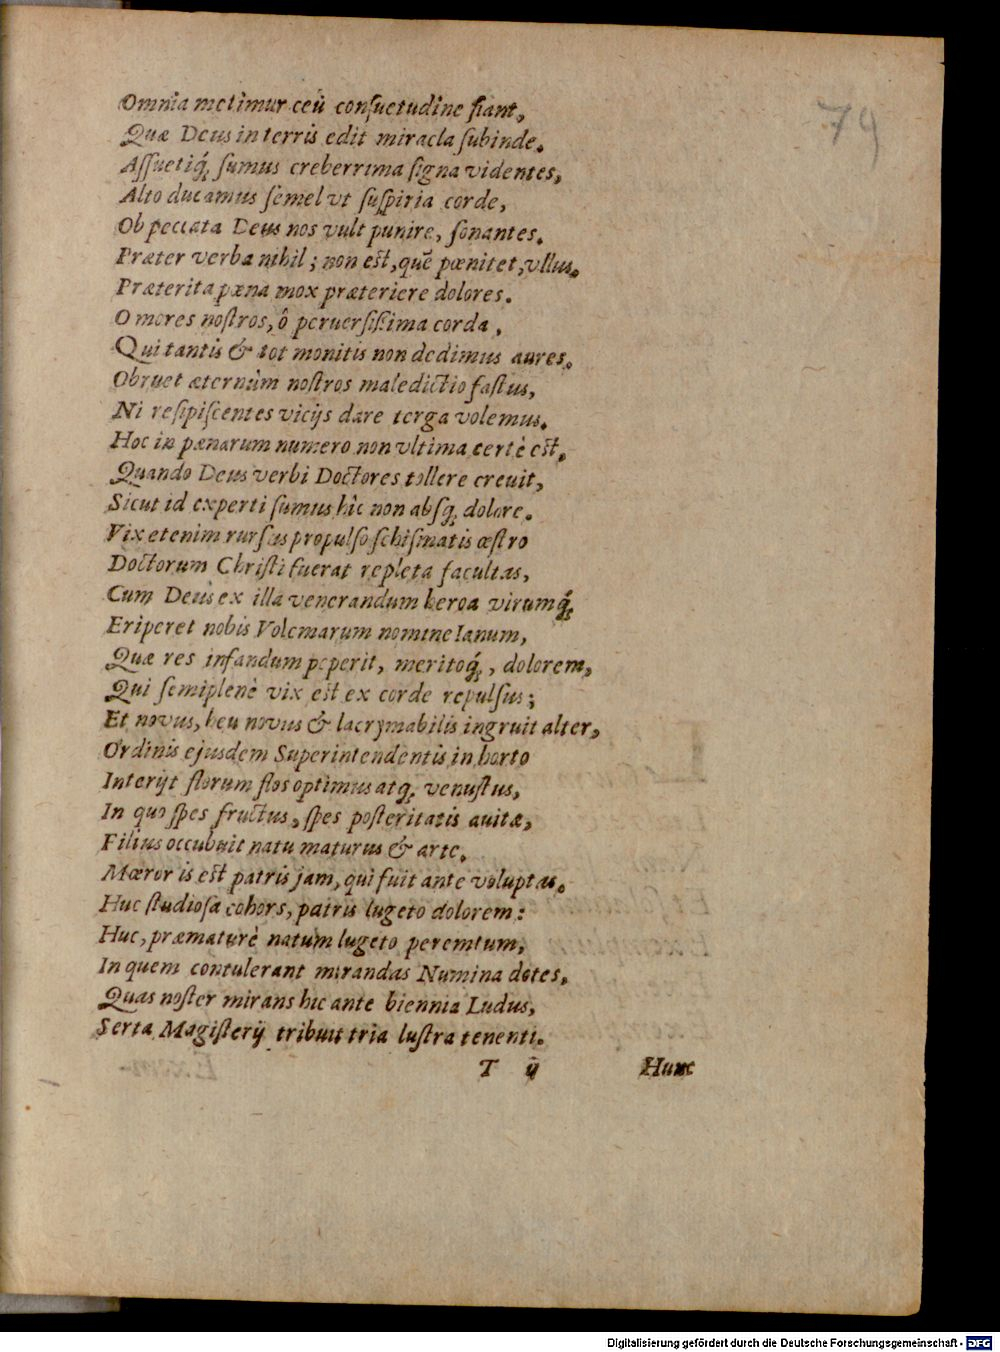 79
Omnia metimur ceù consuetudine fiant,
Quæ Deus in terris edit miracla subinde.
Assuetiq́; sumus creberrima signa videntes,
Alto ducamus semel vt suspiria corde,
Ob peccata Deus nos vult punire, sonantes.
Præter verba nihil; non est, quē pœnitet, vllus.
Præterita pœna mox præteriere dolores.
O mores nostros, ô peruersißima corda,
Qui tantis & tot monitis non dedimus aures.
Obruet æternùm nostros maledictio fastus,
Ni resipiscentes vicijs dare terga volemus.
Hoc in pœnarum numero non vltima certè est,
Quando Deus verbi Doctores tollere crevit,
Sicut id experti sumus hîc non absq; dolore.
Vix etenim rursus propulso schismatis œstro
Doctorum Christi fuerat repleta facultas,
Cum Deus ex illa venerandum heroa virumq́;
Eriperet nobis Volcmarum nomine Ianum,
Quæ res infandum peperit, meritoq́;, dolorem,
Qui semiplenè vix est ex corde repulsus;
Et novus, heu novus & lacrymabilis ingruit alter,
Ordinis ejusdem Superintendentis in horto
Interijt florum flos optimus atq; venustus,
In quo spes fructus, spes posteritatis avitæ,
Filius occubuit natu maturus & arte.
Mœror is est patris jam, qui fuit ante voluptas.
Huc studiosa cohors, patris lugeto dolorem:
Huc, præmaturè natum lugeto peremtum,
In quem contulerant mirandas Numina dotes,
Quas noster mirans hic ante biennia Ludus,
Serta Magisterij tribuit tria lustra tenenti.
T ij Hunc
Digitalisierung gefördert durch die Deutsche Forschungsgemeinschaft - DFG